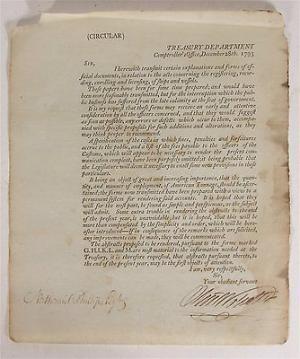 (CIRCULAR)
TREASURY DEPARTMENT
Comptroller's Office, December 28th, 1793
Sir,
Herewith transmit certain explanations and forms of of-
ficial documents, in relation to the acts concerning the registering, recor-
ding, enrolling and licensing, of ships and vessels.
These papers have been for some time prepared; and would have
been more seasonably transmitted, but for the interruption which the pub-
lic business has suffered from the late calamity at the seat of government.
It is my request that these forms may receive an early and attentive
consideration by all the officers concerned, and that they would suggest
as soon as possible, any errors or defects which occur to them, accom-
panied with specific proposals for such additions and alterations, as they
may think proper to recommend.
accrue to the public, and a list of the fees payable to the officers of the
Customs, which will appear to be necessary to render the present com-
munication compleat, have been purposely omitted; being probable that
the Legislature will deem it necessary to make some new provisions in these
particulars.
It being an object of great and increasing importance, that the quan-
tity, and manner of employment, of American Tonnage, should be ascer-
tained; the forms now transmitted have been prepared with a view to a
permanent system for rendering said accounts. It is hoped that they
will for the most part, be found as simple and perspicuous, as the subject
will admit. Some extra trouble in rendering the abstracts
of the present year, is unavoidable; but it is hoped, that this will be
more than compensated by the simplicity and order, which will be here-
after introduced
any improvements can be made, they will be communicated.
The abstracts proposed to be rendered, pursuant to the forms marked
G. H. I. K. L. and are most material to the information needed at the
Treasury, it is therefore requested, that abstracts pursuant thereto, to
the end of the present year, may be the first objects of attention.
I am, very respectfully,
Sir,
Your obedient servant